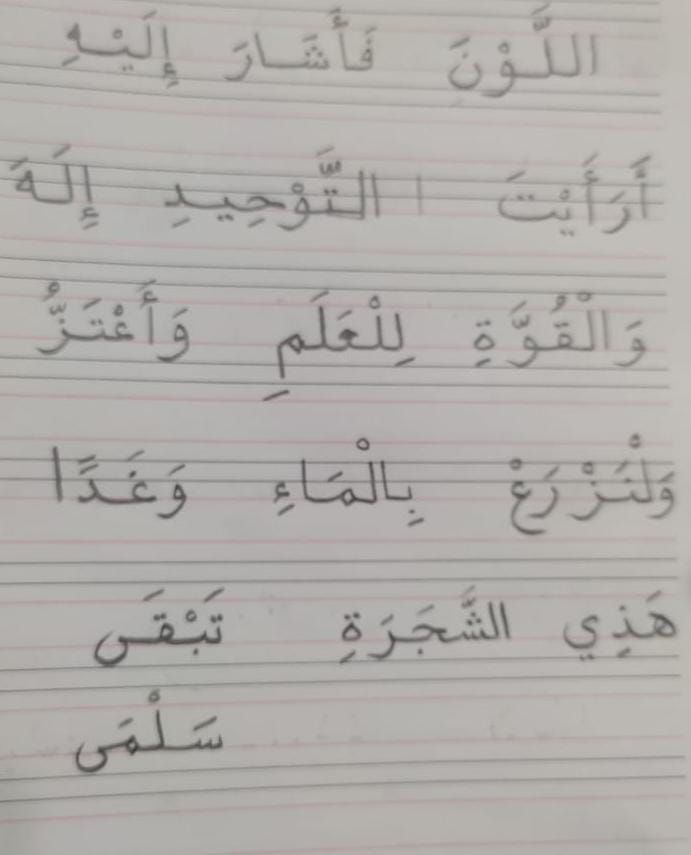 اللَّوْنَ فَأَشَارَ إِلَيْهِ
أَرَأَيْتَ التَّوْحِيدِ إِلَهَ
وَالْقُوَّةِ لِلْعَلَمِ وَأَعْتَزُّ
وَلْنَزْرَعْ بِالْمَاءِ وَغَدًا
هَذِي الشَّجَرَةِ تَبْقَى
سَلْمَى